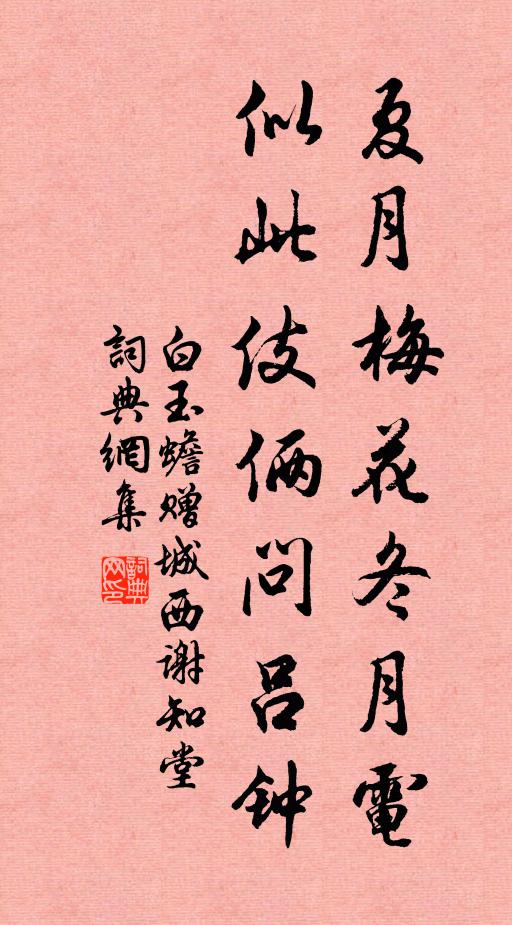 夏月梅花冬月電
似此伎倆問吕钟
白玉蟾赠城西谢知堂
詞典網集
詞典网印